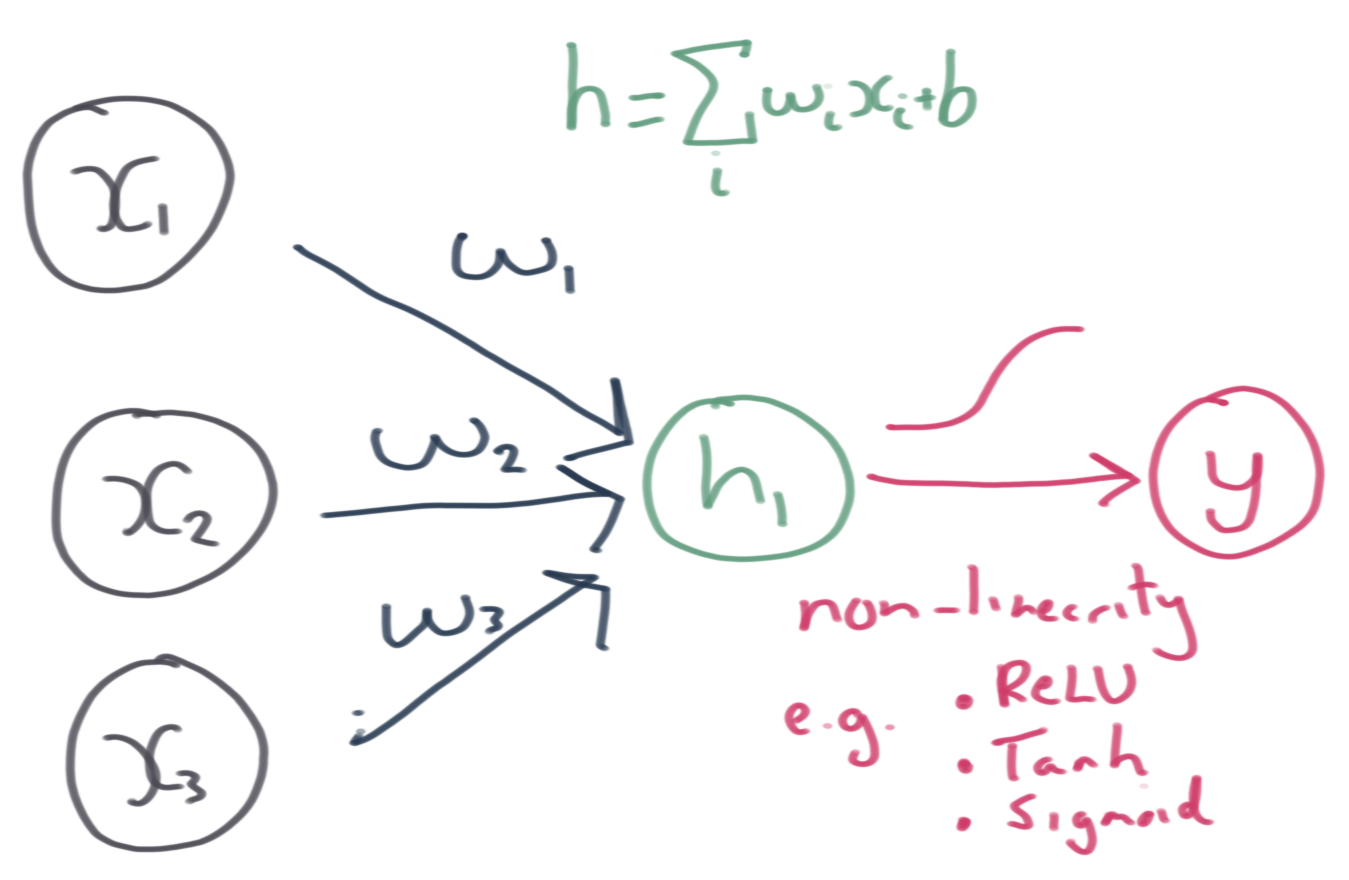 h = ∑ᵢ wᵢxᵢ + b
x₁
w₁
x₂
w₂
h₁
y
w₃
x₃
non-linearity
e.g. • ReLU
• Tanh
• Sigmoid